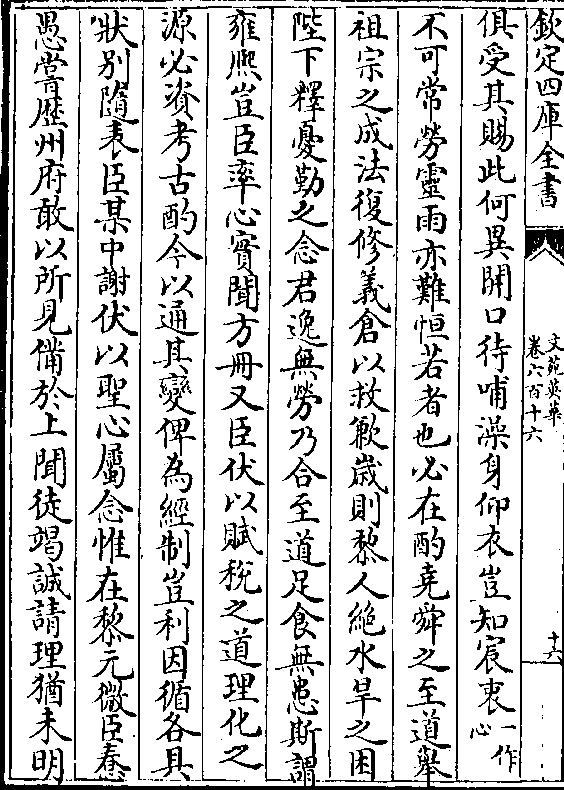 欽定四庫全書
文苑英華
卷六百十六
十六
俱受其賜此何異開口待哺澡身仰衣豈知宸衷一作心
不可常勞靈雨亦難恒若者也必在酌堯舜之至道舉
祖宗之成法復修義倉以救歉歲則黎人絶水旱之困
陛下釋憂勤之念君逸無勞乃合至道足食無患斯謂
雍熙豈臣率心實聞方冊又臣伏以賦稅之道理化之
源必資考古酌今以通其變俾為經制豈利因循各具
狀别隨表臣某中謝伏以聖心屬念惟在黎元微臣惷
愚嘗歴州府敢以所見備於上聞徒竭誠請理猶未明